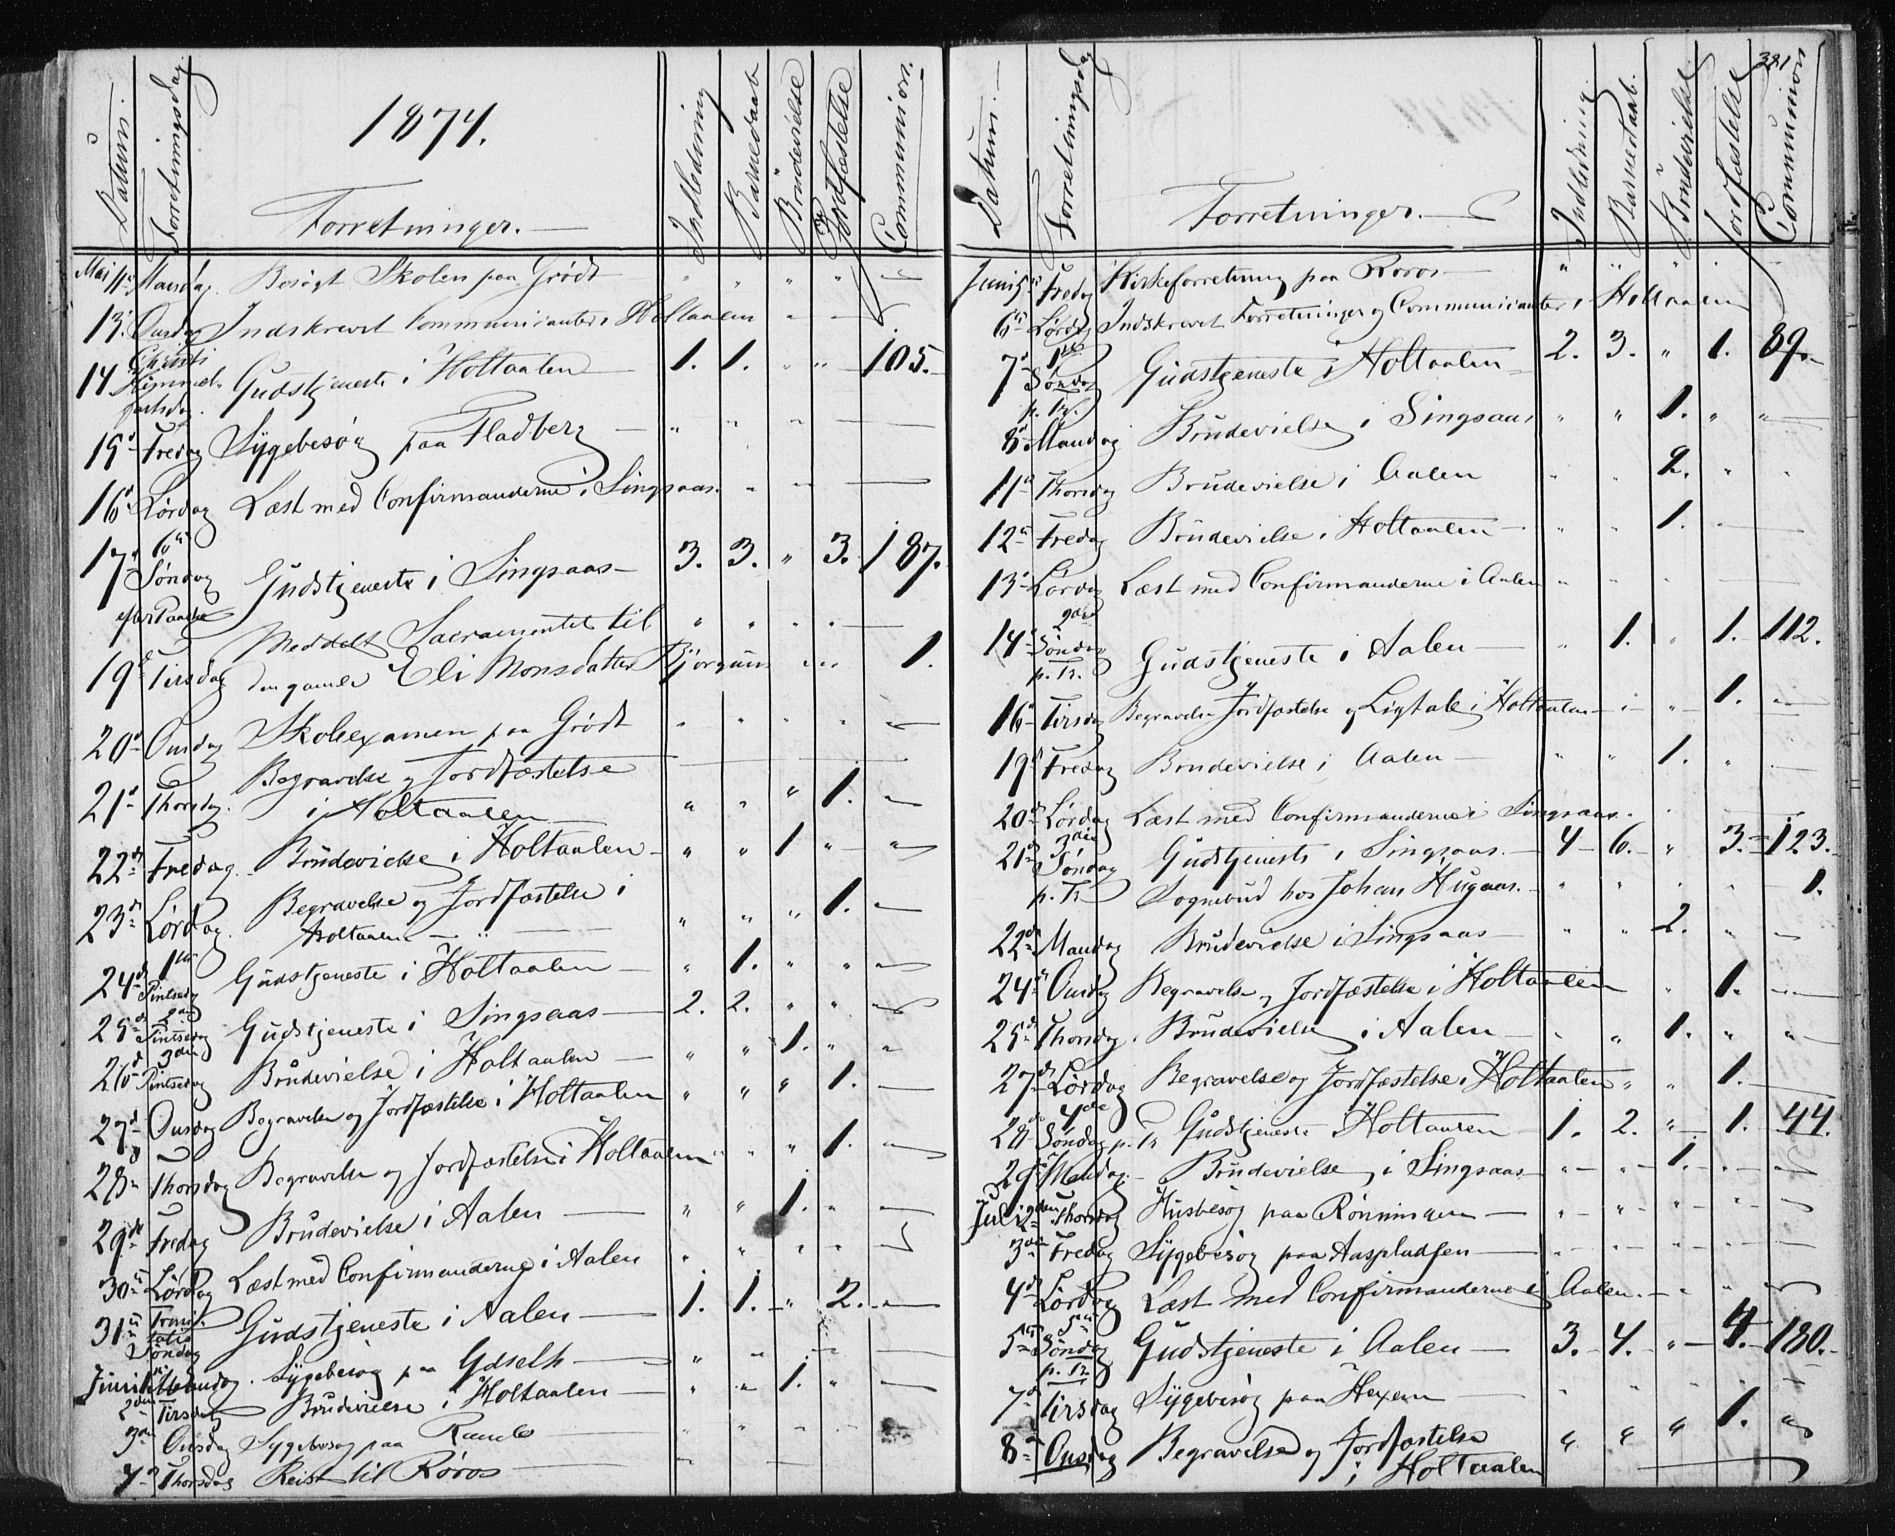 1874.
Datum. Forretningsdag Forretninger. Indledning Barnedaab Brudevielse Jordfæstelse Communion.
Mai 11te Mandag. Besøgt Skolen paa Grødt " " " " "
13. Onsdag Indskrevet Communicanter i Holtaalen " "
14 Christi Himmelfartsdag. Gudstjeneste i Holtaalen 1. 1. " " 105.
15d Fredag Sygebesøg paa Fladberg " " "
16d Lørdag Læst med Confirmanderne i Singsaas. " "
17d 6te Søndag efter Paaske Gudstjeneste i Singsaas 3. 3. " 3. 187.
19d Tirsdag Meddelt Sacramentet til " " " "
den gamle Eli Monsdatter Bjørgum " " 1.
20d Onsdag Skoleexamen paa Grødt " " " "
21d Thorsdag. Begravelse og Jordfæstelse
i Holtaalen " " " 1.
22d Fredag. Brudevielse i Holtaalen " " 1 " "
23d Lørdag. Begravelse og Jordfæstelse i
Holtaalen " " " 1.
24d 1ste Pintsedag Gudstjeneste i Holtaalen " 1. " "
25d 2den Pintsedag Gudstjeneste i Singsaas 2. 2. " "
26d 3den Pintsedag Brudevielse i Holtaalen " " 1. " "
27d Onsdag Begravelse og Jordfæstelse i Holtaalen " " " 1.
28d Thorsdag Begravelse og Jordfæstelse i Holtaalen " " " 1.
29d Fredag Brudevielse i Aalen " " 1. "
30te Lørdag Læst med Confirmanderne i Aalen " " " "
31te Trinitatis Søndag Gudstjeneste i Aalen 1. 1. " 2.
Juni 1te Mandag. Sygebesøg paa " "
2den Tirsdag Brudevielse i Holtaalen " " 1. "
3die Onsdag Sygebesøg paa " "
4de Thorsdag Reist til Røros
381
Datum. Forretningsdag Forretninger. Indledning Barnedaab. Brudevielse Jordfæstelse Communion
Juni 5te Fredag Kirkeforretning paa Røros " " "
6te Lørdag Indskrevet Forretninger og Communicanter i Holtaalen
7d 1ste Søndag p. Tr. Gudstjeneste i Holtaalen 2. 3. " 1. 89.
8d Mandag Brudevielse i Singsaas " " 1. " "
11te Thorsdag Brudevielse i Aalen " " 2. " "
12te Fredag Brudevielse i Holtaalen " " 1. "
13d Lørdag Læst med Confirmanderne i Aalen " "
14d 2den Søndag p. Tr. Gudstjeneste i Aalen " 1. " 1. 112.
16d Tirsdag Begravelse Jordfæstelse og Ligtale i Holtaalen " " 1. "
19d Fredag Brudevielse i Aalen " " 1. "
20d Lørdag Læst med Confirmanderne i Singsaas.
21d 3die Søndag p. Tr Gudstjeneste i Singsaas. 4 6. " 3. 123.
Sognebud hos Johan Hugaas. " " " " 1.
22d Mandag Brudevielse i Singsaas " " 2. "
24d Onsdag Begravelse og Jordfæstelse i Holtaalen " 1.
25d Thorsdag. Brudevielse i Aalen " " 1. " "
27d Lørdag Begravelse og Jordfæstelse i Holtaalen " " 1.
28d 4de Søndag p. Tr Gudstjeneste Holtaalen 1. 2. " 1. 44.
29d Mandag. Brudevielse i Singsaas " " 1.
Juli 2den Thorsdag Husbesøg paa Rønningen " " " "
3die Fredag Sygebesøg paa Aaspladsen " " " "
4d Lørdag Læst med Confirmanderne i Aalen. " "
5te 5te Søndag p. Tr Gudstjeneste i Aalen 3. 4. " 4. 180.
7d Tirsdag Sygebesøg paa Hexem " " " "
8d Onsdag Begravelse og Jordfæstelse
i Holtaalen " " " 1. "